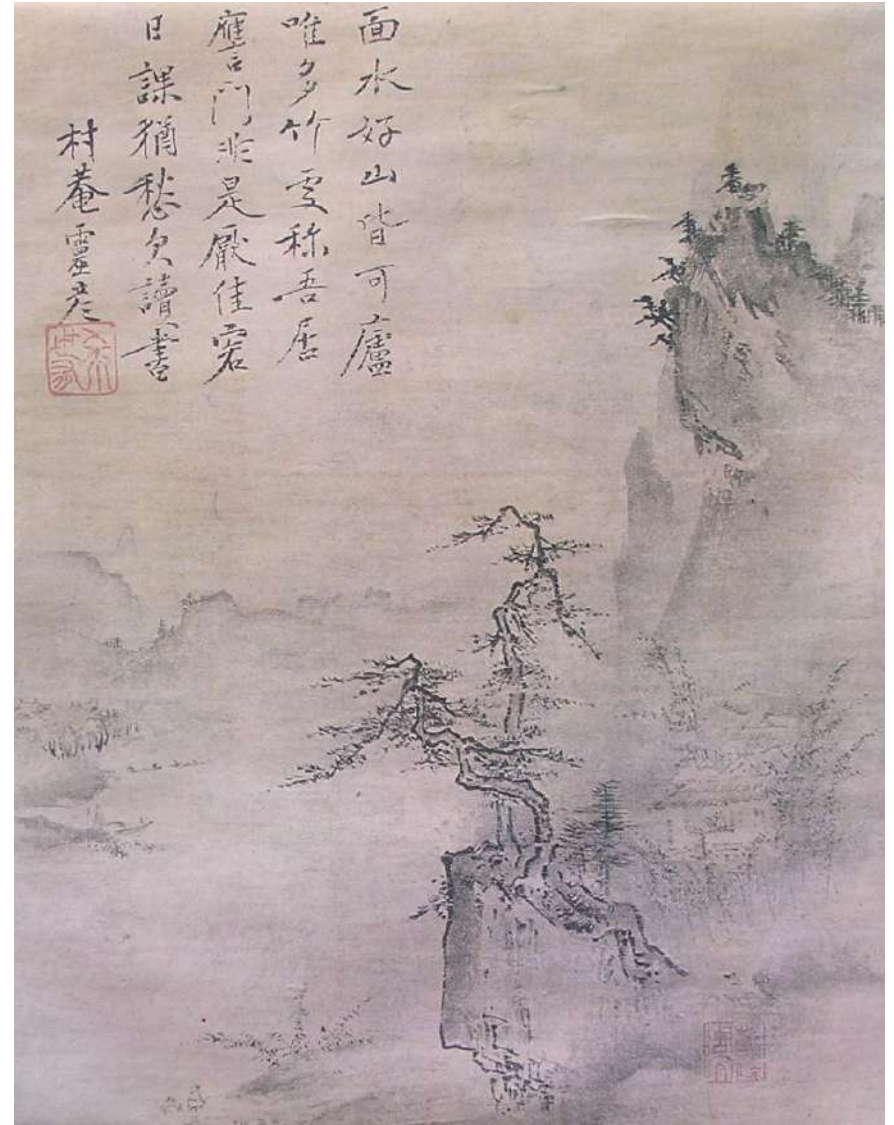 面水好山皆可廬
唯多竹處称吾居
應門非是厭佳客
日課猶愁欠讀書
村菴靈彦